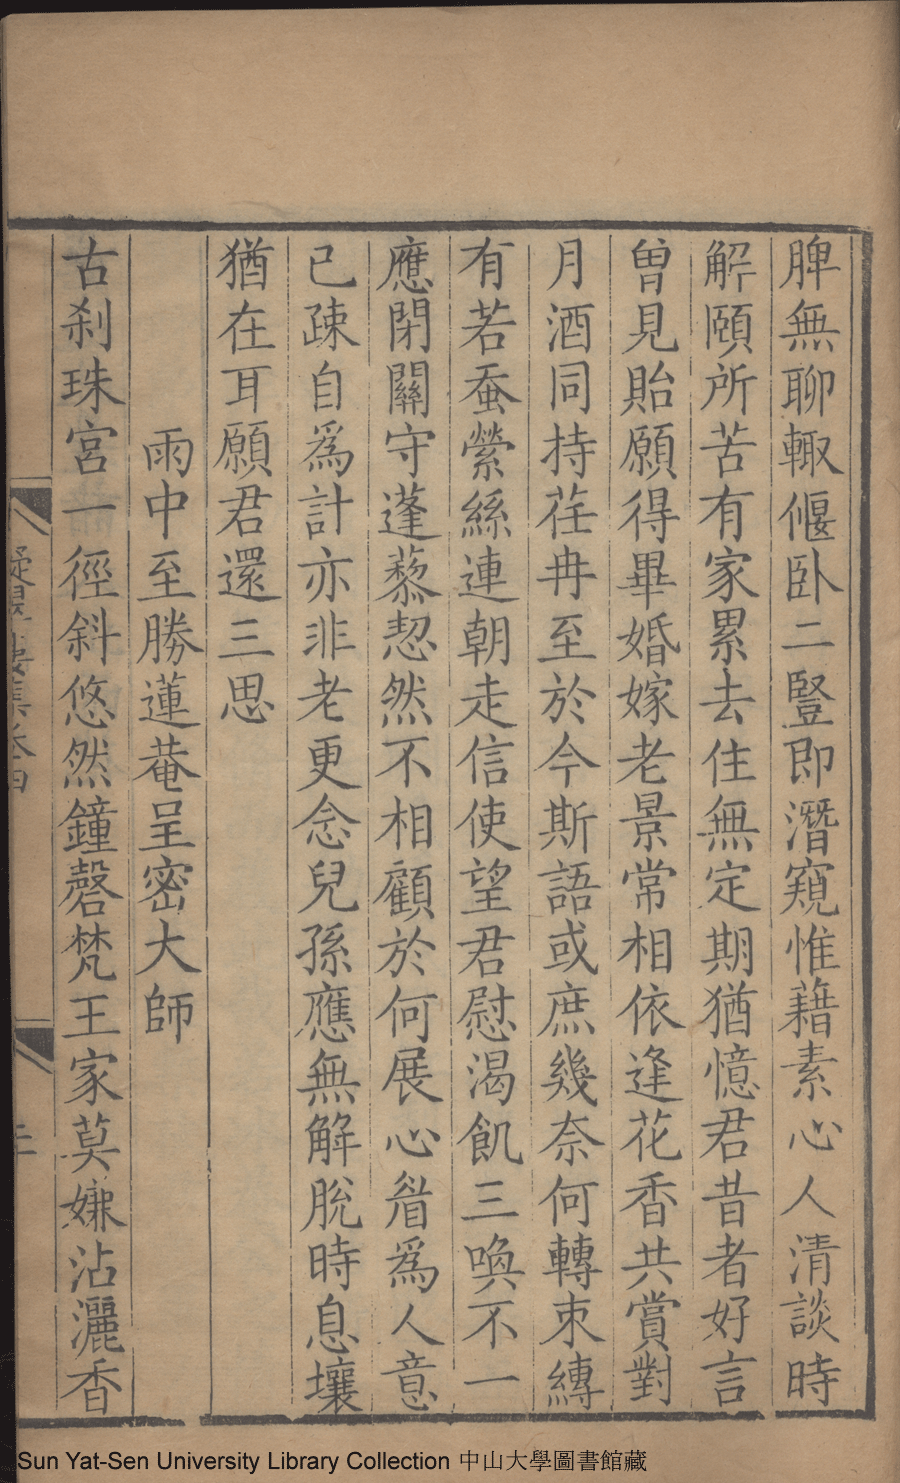 脾無聊輙偃臥二豎即潛窺惟藉素心人清談時
解頤所苦有家累去住無定期猶憶君昔者好言
曾見貽願得畢婚嫁老景常相依逢花香共賞對
月酒同持荏冉至於今斯語或庶幾奈何轉束縛
有若蚕縈絲連朝走信使望君慰渴飢三喚不一
應閉關守蓬藜恝然不相顧於何展心眉爲人意
已疎自爲計亦非老更念兒孫應無解脫時息壤
猶在耳願君還三思
雨中至勝蓮菴呈密大師
古刹珠宮一徑斜悠然鐘磬梵王家莫嫌沾灑香
集卷四
Sun Yat-Sen University Library Collection 中山大學圖書館藏